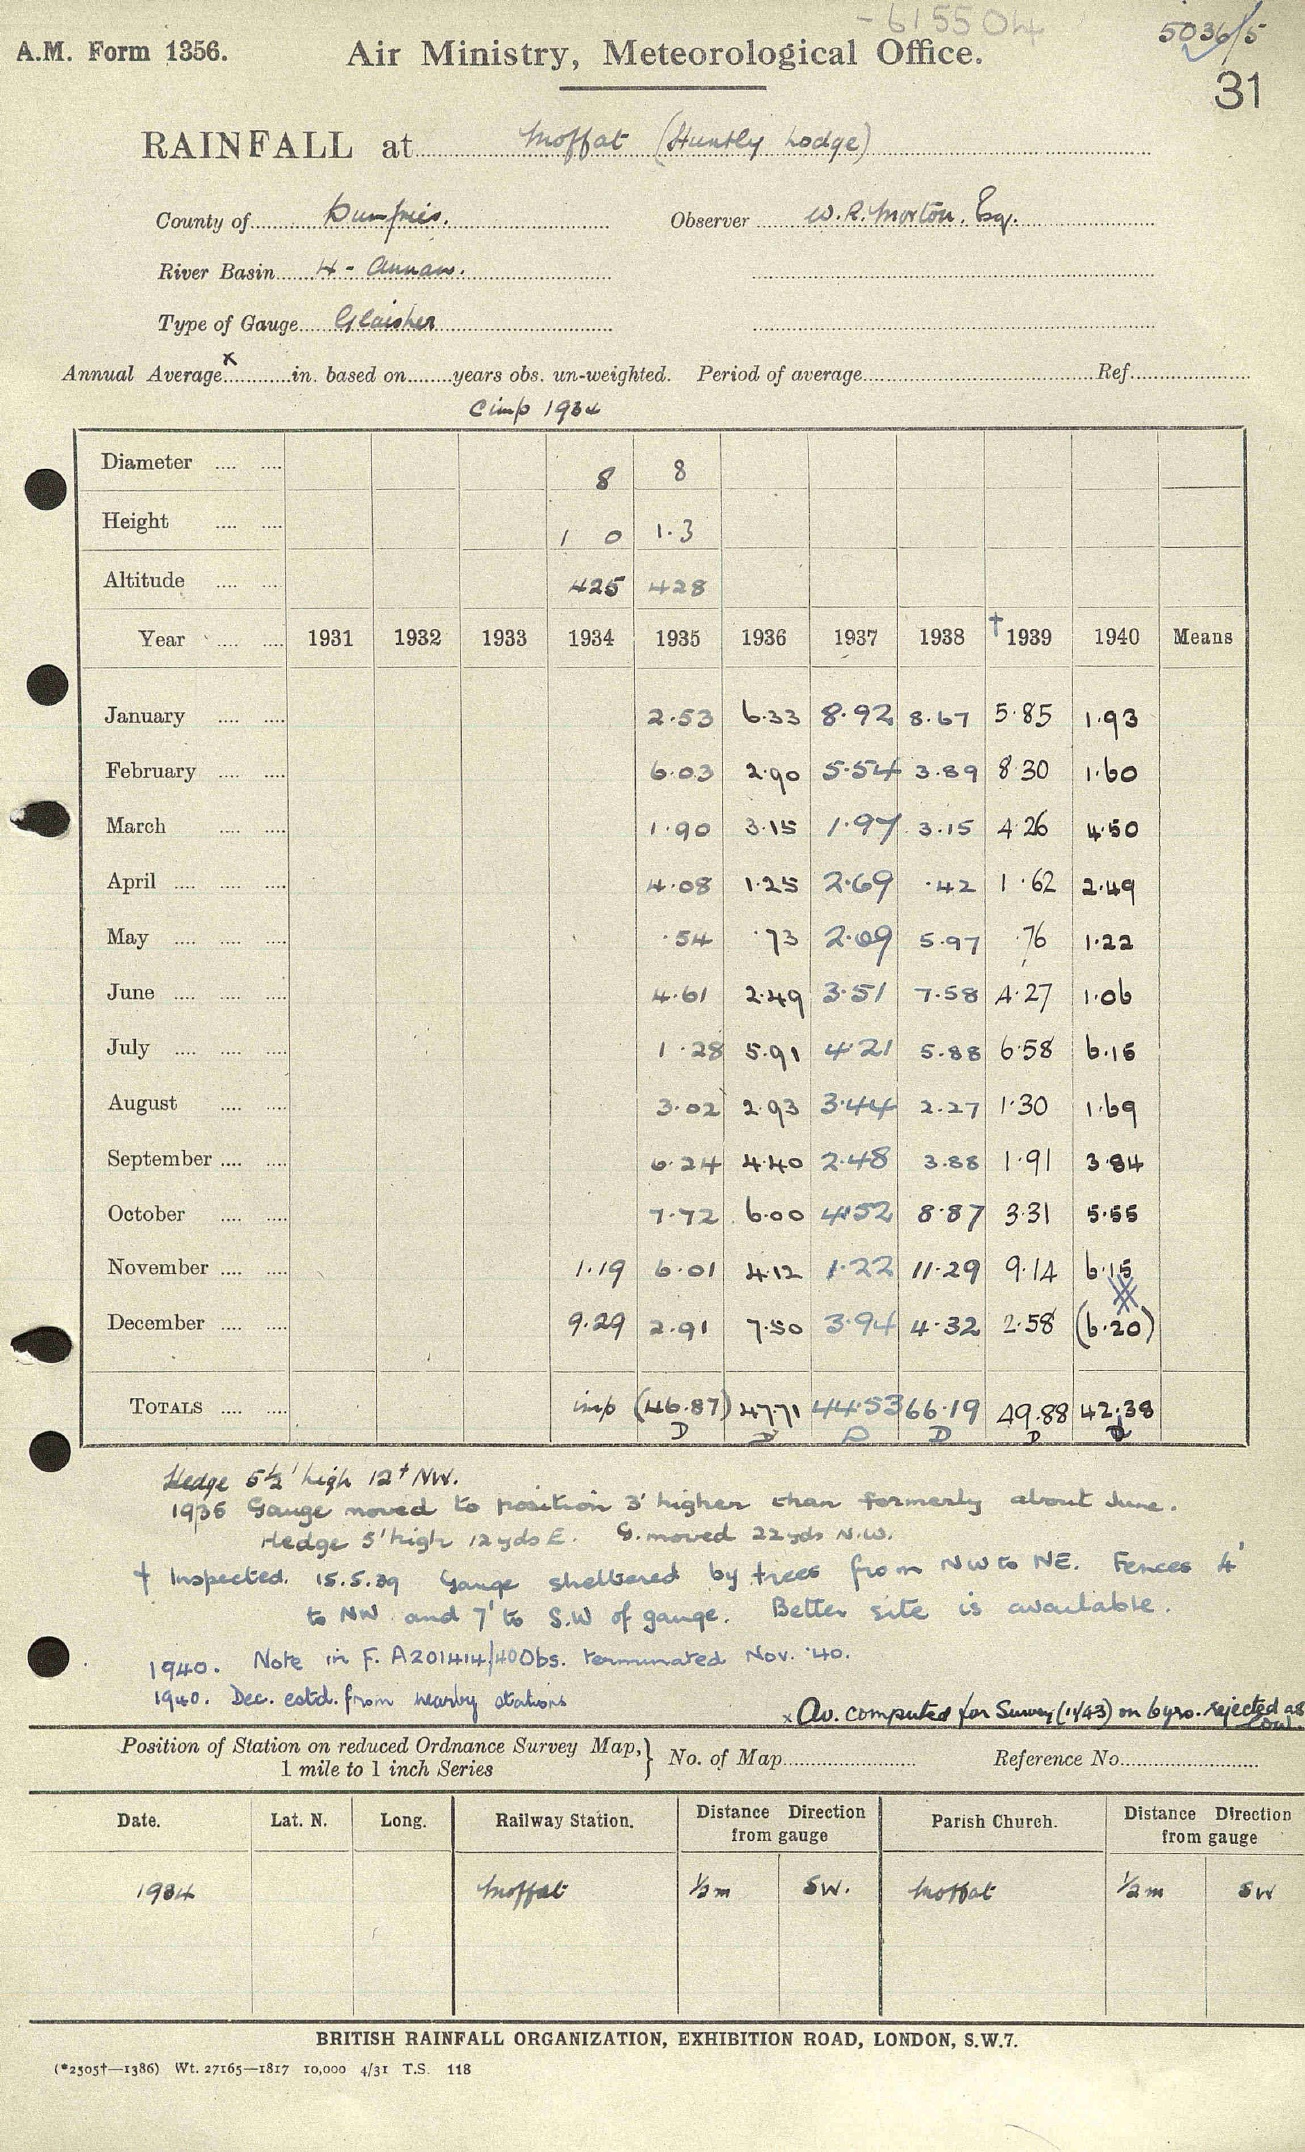 -615504
5036/5
A.M. Form 1356.
Air Ministry, Meteorological Office.
31
RAINFALL at Moffat (Huntly Lodge)
County of Dumfries. Observer W.R. Morton, Esq.
River Basin 4 - Annan.
Type of Gauge Glaisher
Annual Average x in. based on years obs. un-weighted. Period of average Ref.
Cimp 1934
Diameter 8 8
Height 1 0 1.3
Altitude 425 428
Year 1931 1932 1933 1934 1935 1936 1937 1938 † 1939 1940 Means
January 2.53 6.33 8.92 8.67 5.85 1.93
February 6.03 2.90 5.54 3.89 8.30 1.60
March 1.90 3.15 1.97 3.15 4.26 4.50
April 4.08 1.25 2.69 .42 1.62 2.49
May .54 .73 2.09 5.97 .76 1.22
June 4.61 2.49 3.51 7.58 4.27 1.06
July 1.28 5.91 4.21 5.88 6.58 6.15
August 3.02 2.93 3.44 2.27 1.30 1.69
September 6.24 4.40 2.48 3.88 1.91 3.84
October 7.72 6.00 4.52 8.87 3.31 5.55
November 1.19 6.01 4.12 1.22 11.29 9.14 6.15
December 9.29 2.91 7.50 3.94 4.32 2.58 (6.20)
TOTALS imp (46.87) 47.71 44.53 66.19 49.88 42.38
D D D D D D
Hedge 5½' high 12' NW.
1935 Gauge moved to position 3' higher than formerly about June.
Hedge 5' high 12 yds E. G. moved 22 yds N.W.
† Inspected. 15.5.39 Gauge sheltered by trees from NW to NE. Fences 4'
to NW and 7' to S.W of gauge. Better site is available.
1940. Note in F. A201414/40 Obs. terminated Nov. '40.
1940. Dec. estd. from nearby stations
x Av. computed for Survey (11/43) on 6 yrs. rejected as
low.
Position of Station on reduced Ordnance Survey Map, } No. of Map Reference No.
1 mile to 1 inch Series
Date. Lat. N. Long. Railway Station. Distance Direction from gauge Parish Church. Distance Direction from gauge
1934 Moffat ½m SW. Moffat ½m SW
BRITISH RAINFALL ORGANIZATION, EXHIBITION ROAD, LONDON, S.W.7.
(*2505†—1386) Wt. 27165—1817 10,000 4/31 T.S. 118